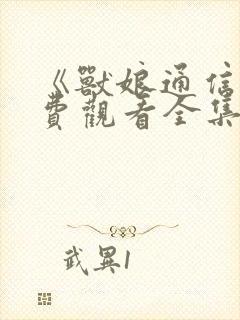 《獸娘通信
費觀看全集
武異1